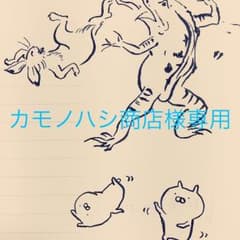 カモノハシ商店様専用